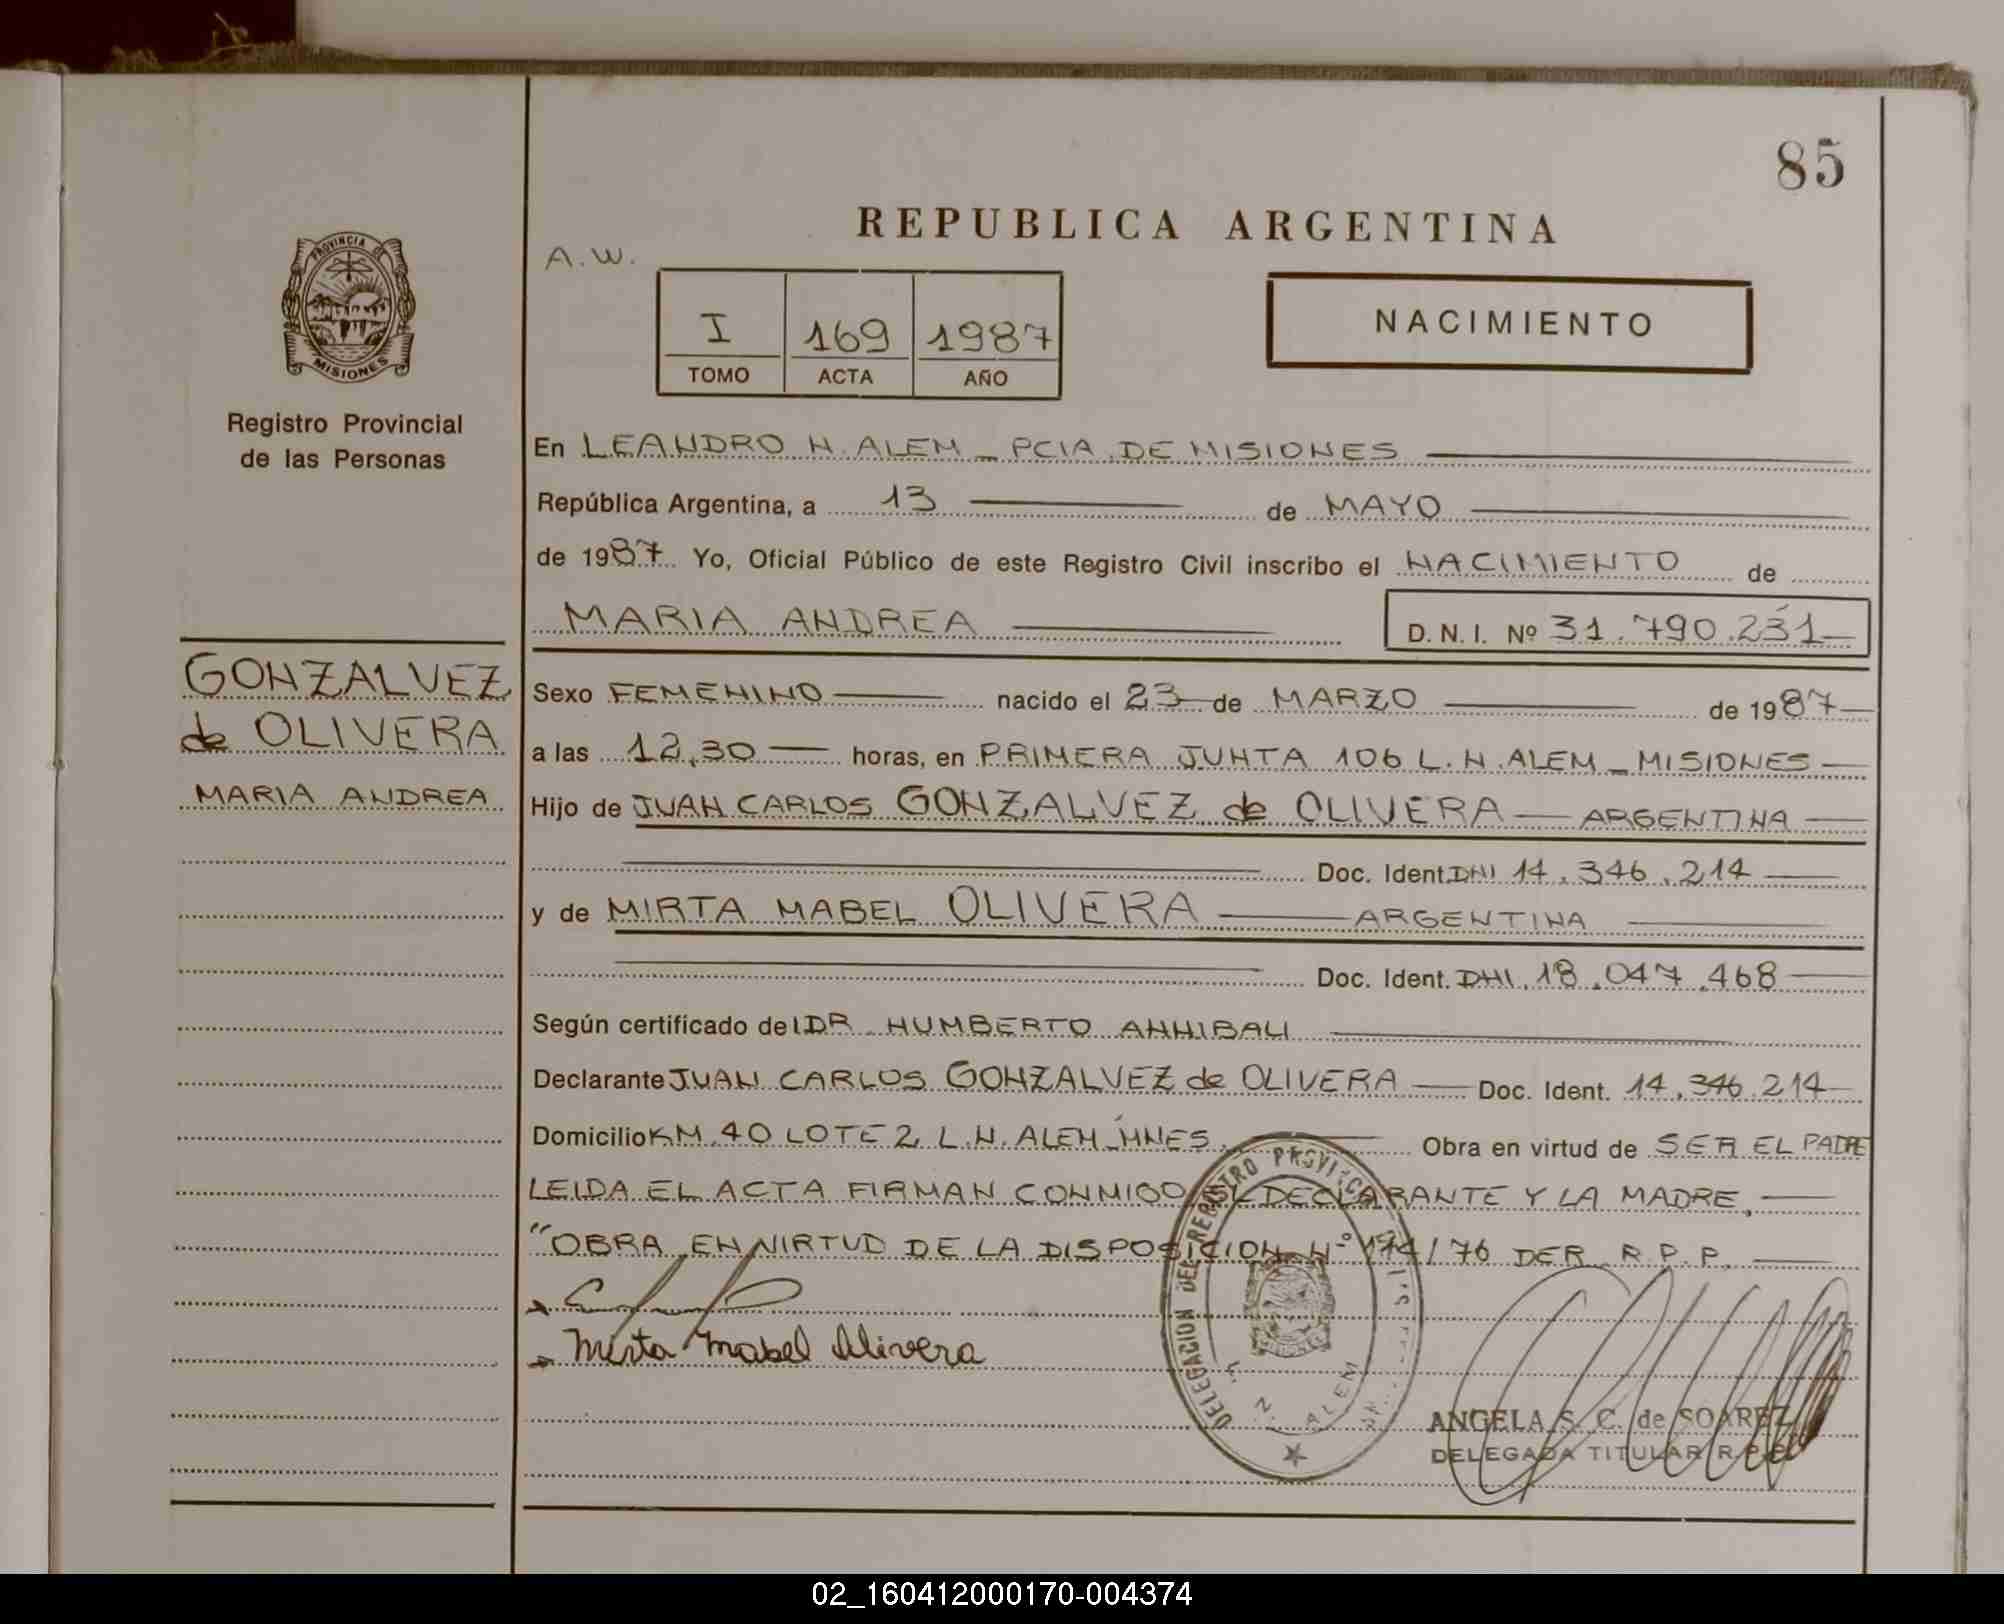 85
REPUBLICA ARGENTINA
A.W.
PROVINCIA DE
MISIONES
I 169 1987
TOMO ACTA AÑO
NACIMIENTO
Registro Provincial
de las Personas
En LEANDRO N. ALEM - PCIA. DE MISIONES
República Argentina, a 13 de MAYO
de 1987. Yo, Oficial Público de este Registro Civil inscribo el NACIMIENTO de
MARIA ANDREA D. N. I. Nº 31.790.231
GONZALVEZ
de OLIVERA
MARIA ANDREA
Sexo FEMENINO nacido el 23 de MARZO de 1987
a las 12,30 horas, en PRIMERA JUNTA 106 L.N. ALEM - MISIONES
Hijo de JUAN CARLOS GONZALVEZ de OLIVERA ARGENTINA
Doc. Ident. DNI 14.346.214
y de MIRTA MABEL OLIVERA ARGENTINA
Doc. Ident. DNI. 18.047.468
Según certificado del DR. HUMBERTO ANNIBALI
Declarante JUAN CARLOS GONZALVEZ de OLIVERA Doc. Ident. 14.346.214
Domicilio KM. 40 LOTE 2 L.N. ALEM - MNES. Obra en virtud de SER EL PADRE
LEIDA EL ACTA FIRMAN CONMIGO Y DECLARANTE Y LA MADRE.
"OBRA EN VIRTUD DE LA DISPOSICION Nº 174/76 DER R.P.P.
Mirta Mabel Olivera
DELEGACION DEL REGISTRO PROVINCIAL
L. N. ALEM
ANGELA S. C. de SOAREZ
DELEGADA TITULAR R.P.P.
02_160412000170-004374